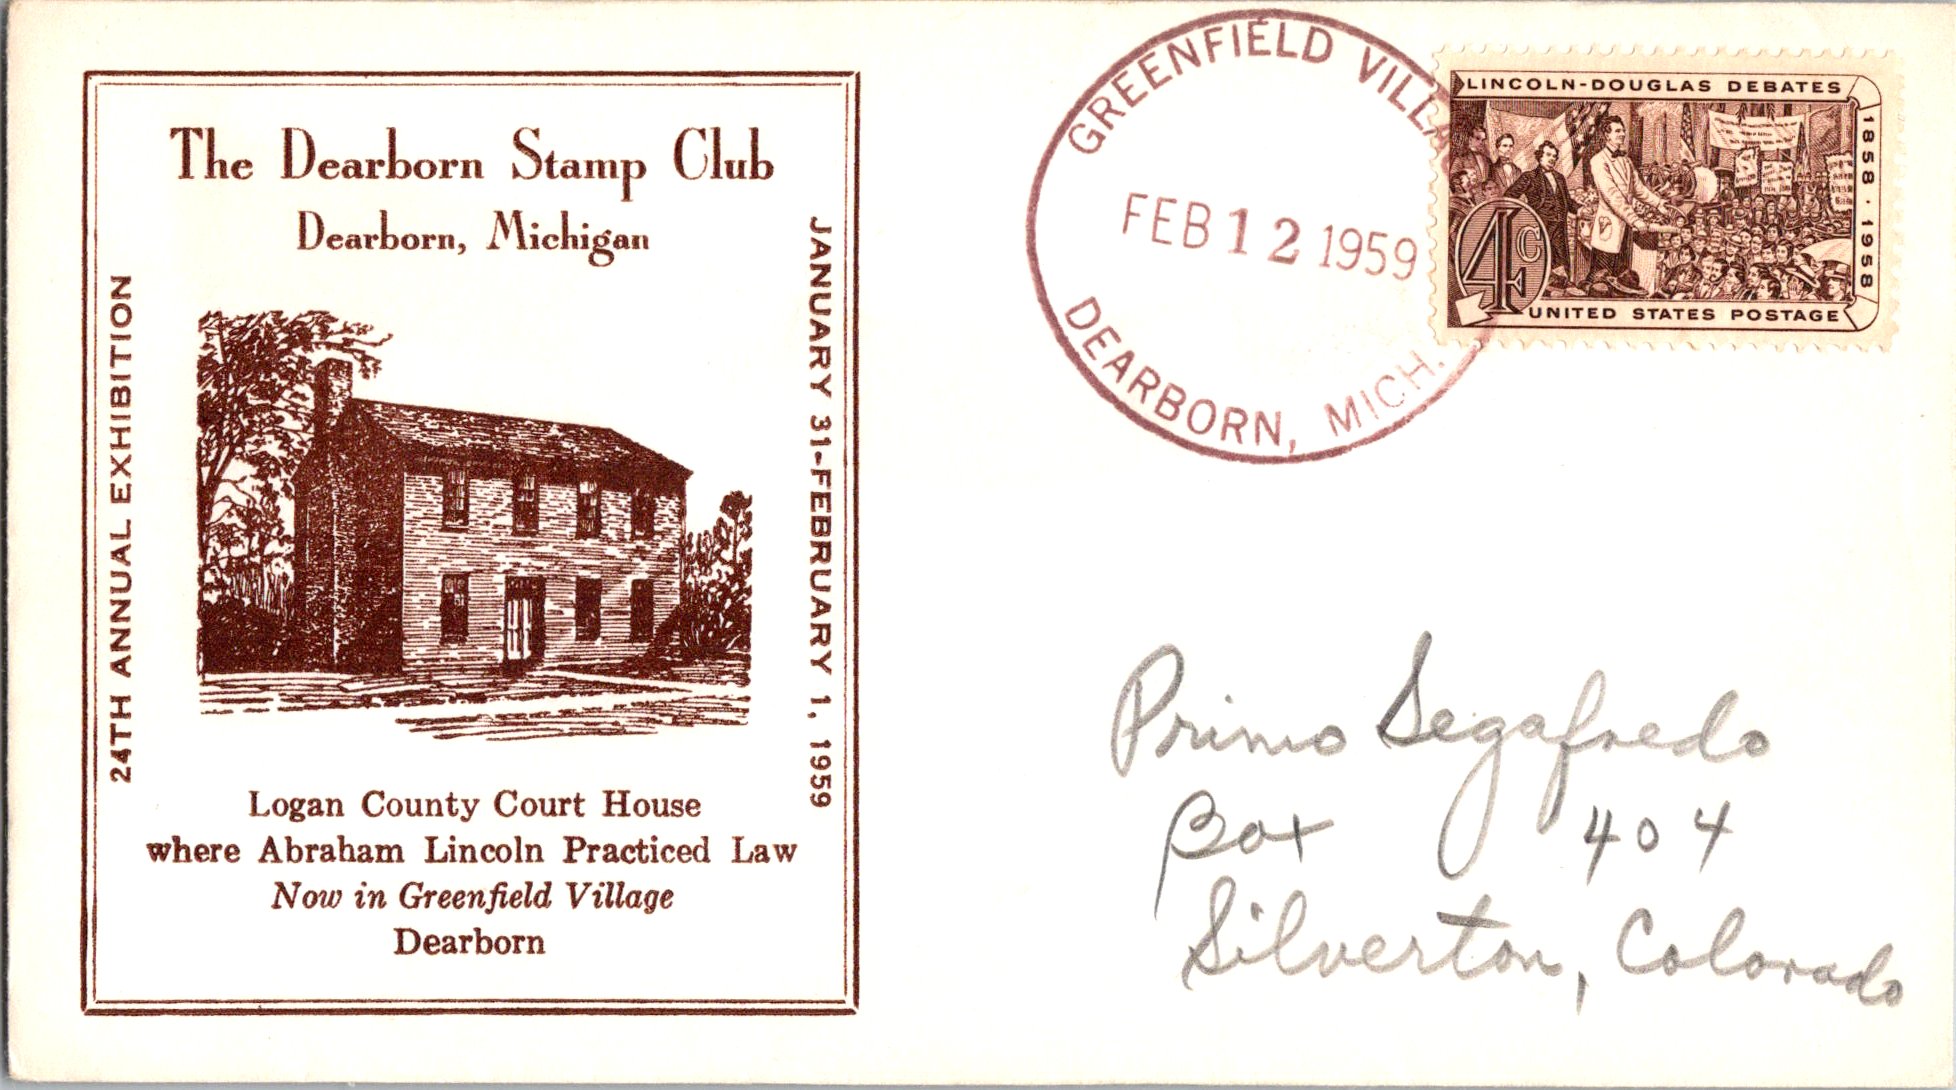 The Dearborn Stamp Club
Dearborn, Michigan
24TH ANNUAL EXHIBITION
JANUARY 31-FEBRUARY 1, 1959
Logan County Court House
where Abraham Lincoln Practiced Law
Now in Greenfield Village
Dearborn
GREENFIELD VILLA
FEB 12 1959
DEARBORN, MICH.
LINCOLN-DOUGLAS DEBATES
1858 · 1958
4c
UNITED STATES POSTAGE
Primo Segafredo
Box 404
Silverton, Colorado